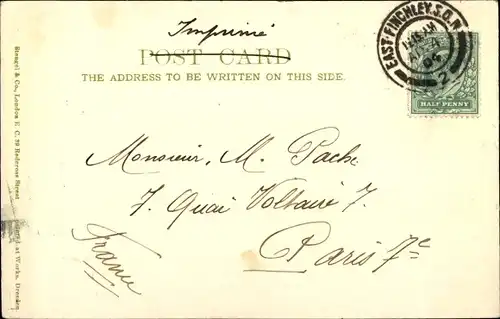 Imprimé
POST CARD
THE ADDRESS TO BE WRITTEN ON THIS SIDE.
EAST-FINCHLEY.S.O.
04
2
HALF PENNY
Monsieur, M. Pache
7. Quai Voltaire 7.
Paris 7e
France
Stengel & Co., London E. C. 39 Redcross Street
at Works, Dresden